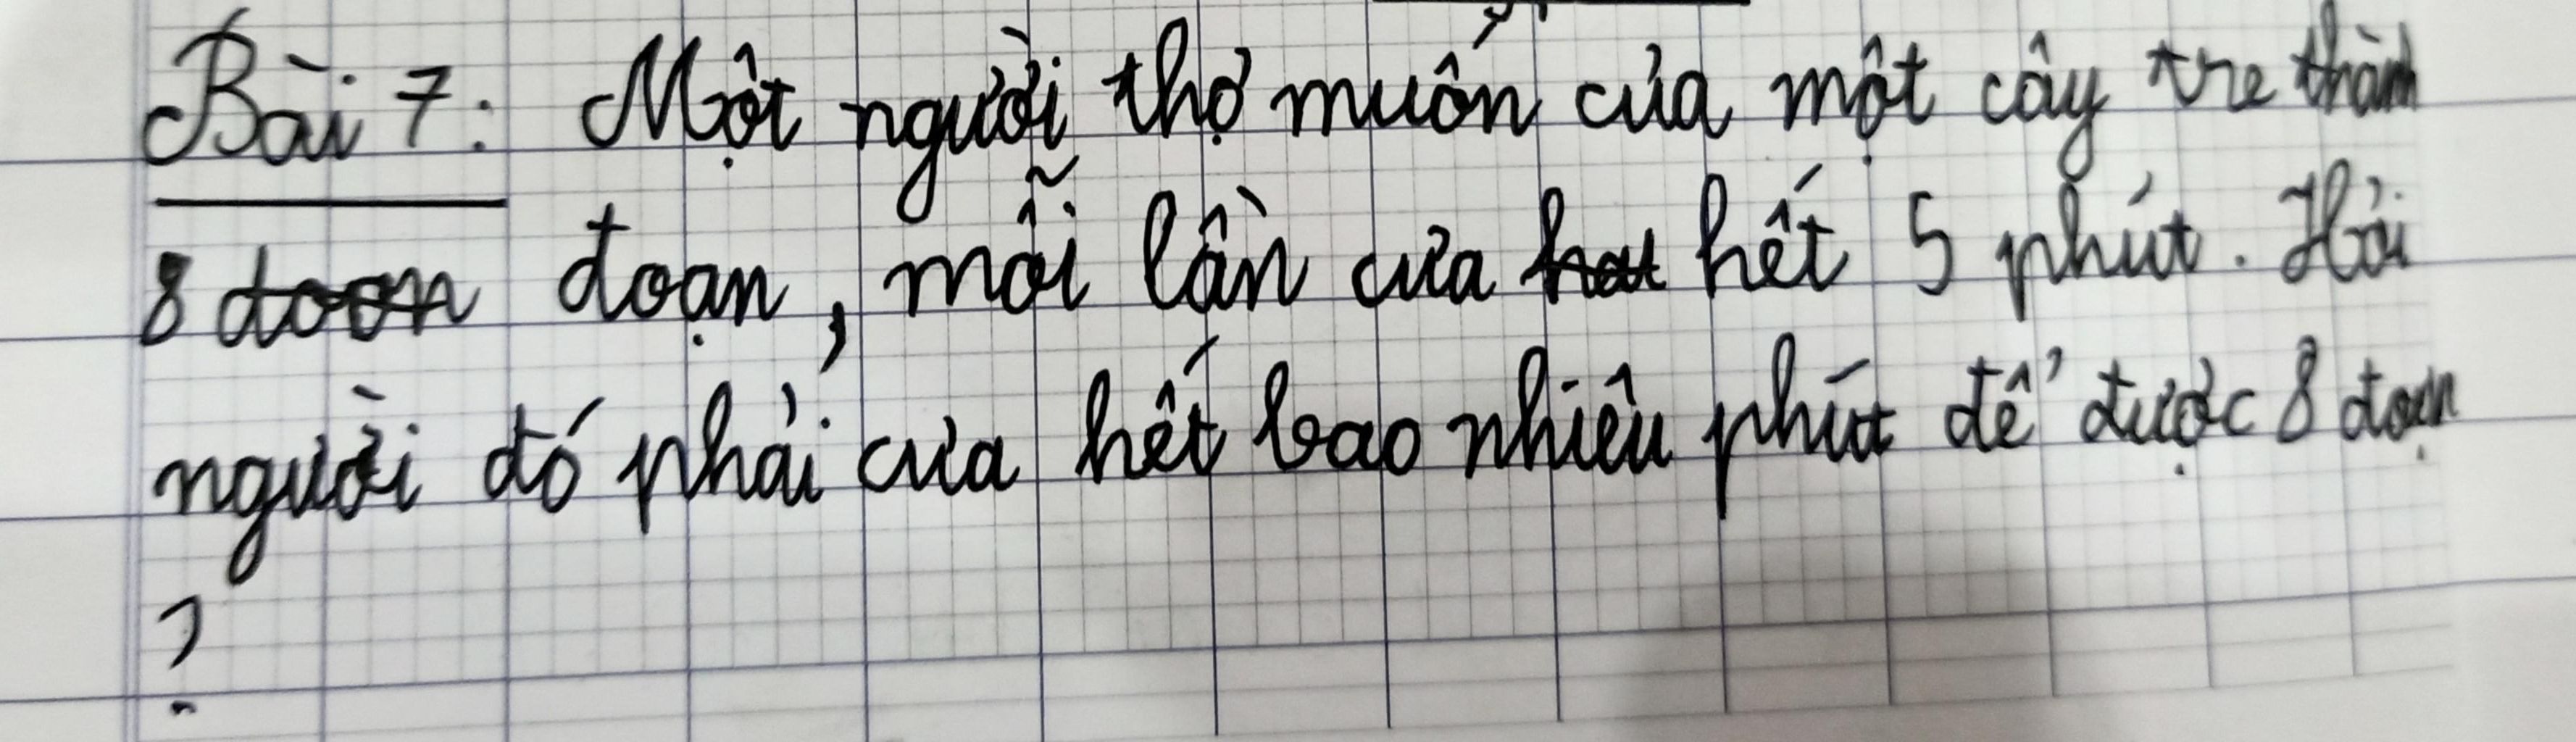 Bài 7: Một người thợ muốn cưa một cây tre thành
8 đoạn, mỗi lần cưa hết 5 phút. Hỏi
người đó phải cưa hết bao nhiêu phút để được 8 đoạn
?